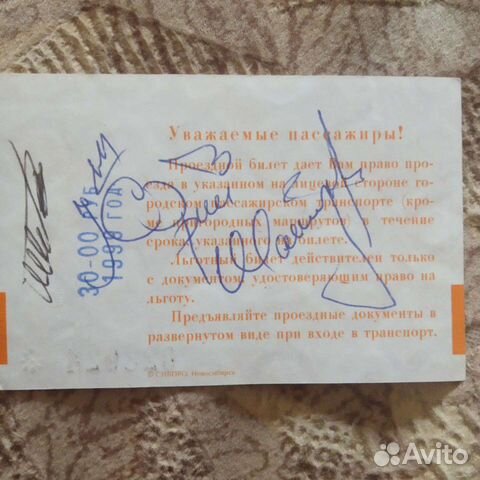 Уважаемые пассажиры!
Проездной билет дает Вам право про-
езда в указанном на лицевой стороне го-
родском пассажирском транспорте (кро-
ме пригородных маршрутов) в течение
срока, указанного на билете.
Льготный билет действителен только
с документом, удостоверяющим право на
льготу.
Предъявляйте проездные документы в
развернутом виде при входе в транспорт.
30-00 РУБ
1998 ГОД
Новосибирск
Avito